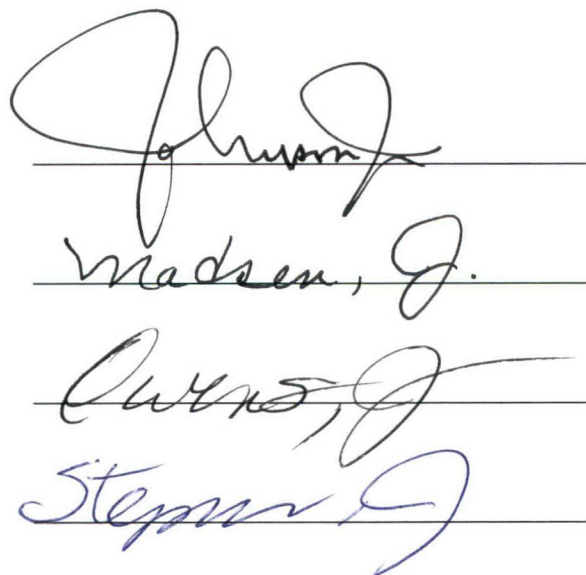 Johnson, J
Madsen, J.
Owens, J
Stephens, J